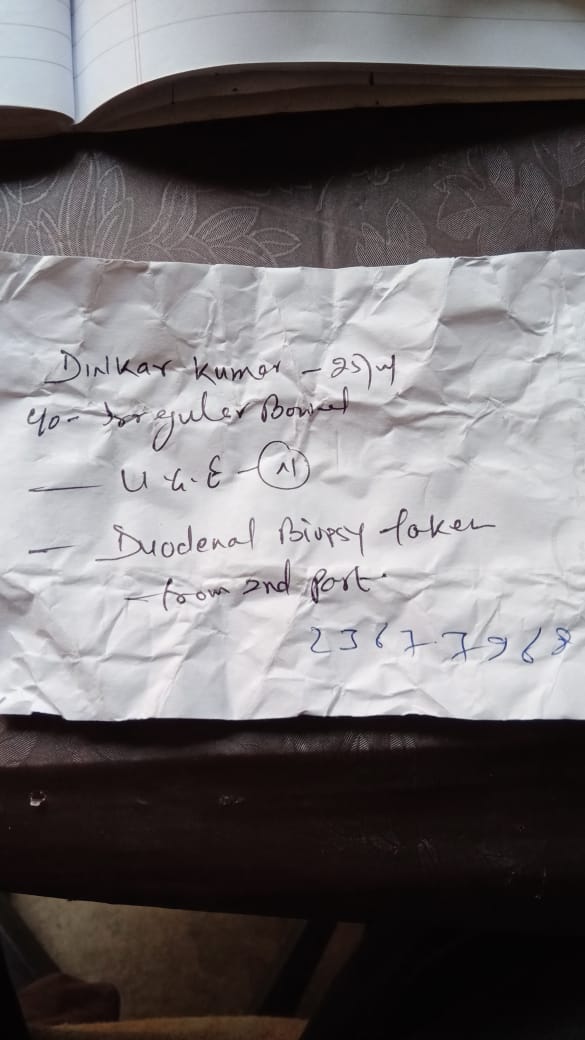 Dinkar Kumar - 25/M
c/o- Irregular Bowel
— U.G.E - (N)
— Duodenal Biopsy taken
- from 2nd Part.
23677968